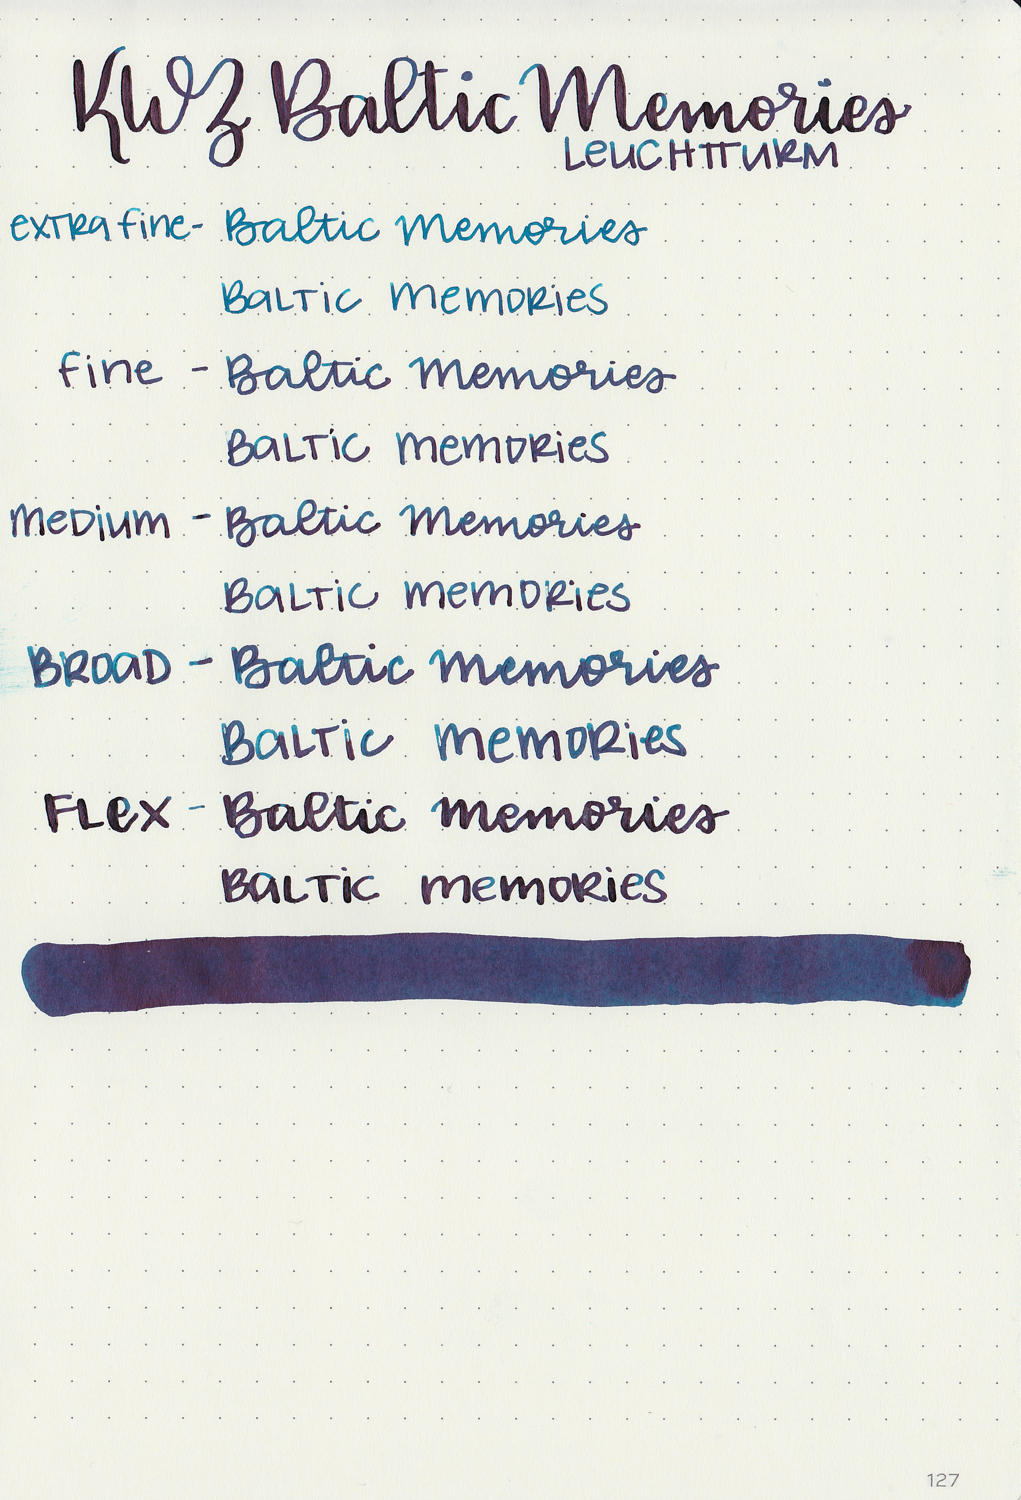 KWZ Baltic Memories
LEUCHTTURM
extra fine - Baltic Memories
Baltic Memories
fine - Baltic Memories
Baltic Memories
Medium - Baltic Memories
Baltic Memories
BROAD - Baltic Memories
Baltic Memories
Flex - Baltic Memories
Baltic Memories
127